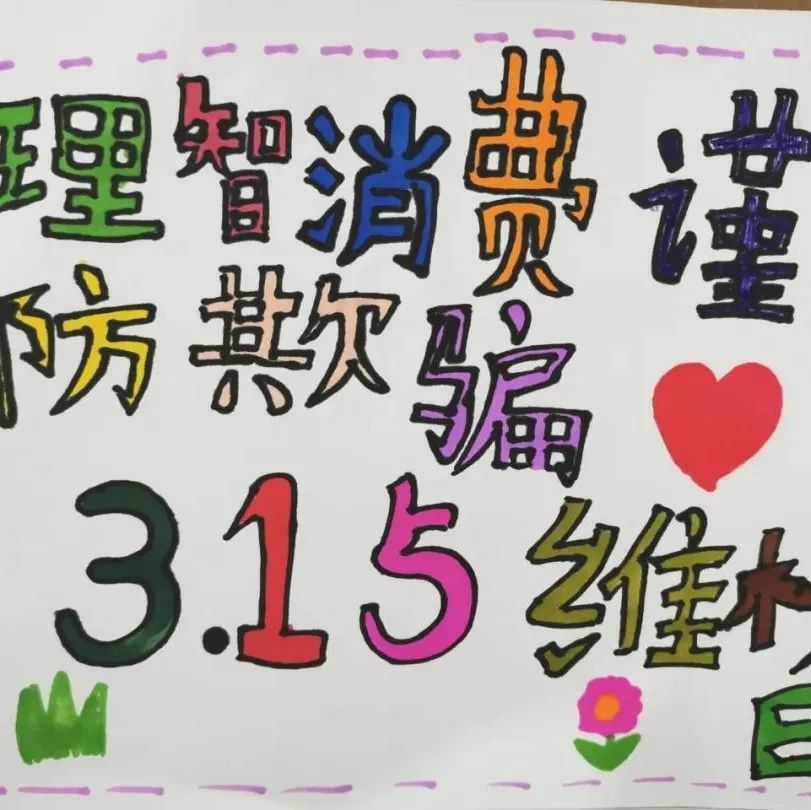 理智消费 谨
防欺骗
3.15维权